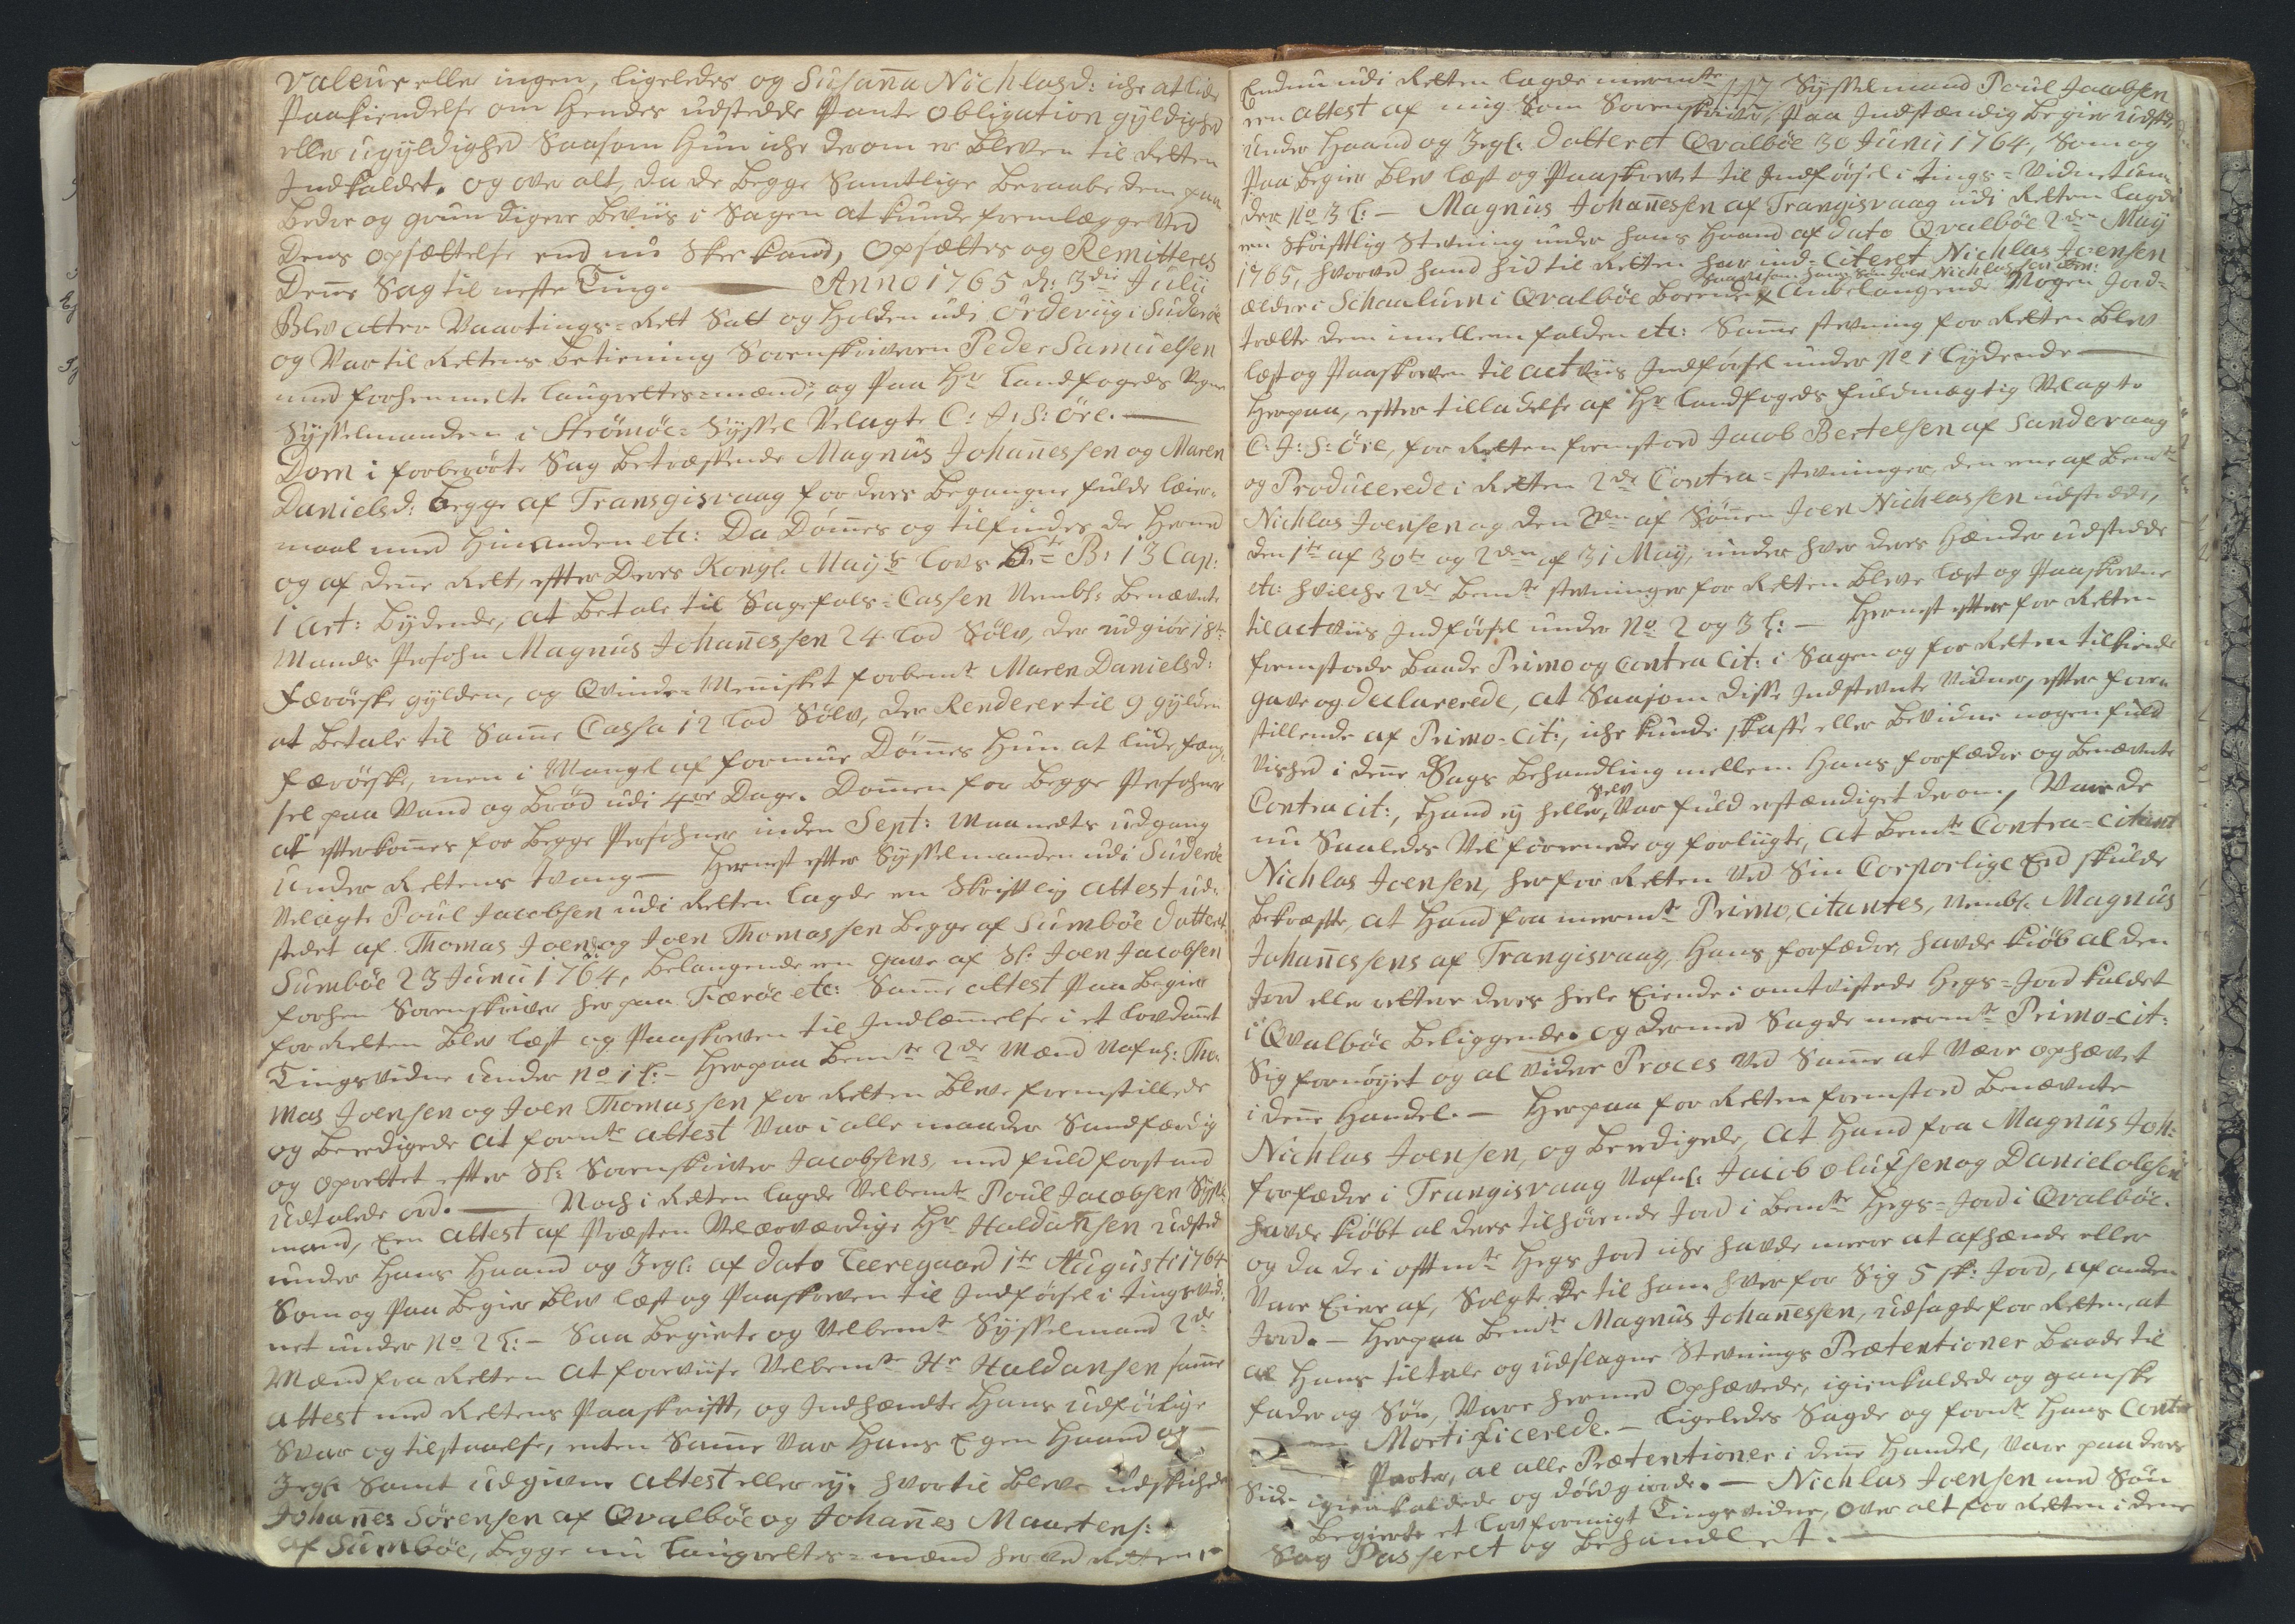 Valeur eller ingen, ligeledes og Susanna Nichlasd: iche at lide
Paakiendelse om Hendes udstedde Pante Obligation gyldighed
eller ugyldighed Saasom Hun iche derom er bleven til Retten
Indkaldet. og over alt, da de begge Samtlige beraabe dem paa
bedre og grundigere beviis i Sagen at kunde fremlægge Ved
Dens opsættelse end nu Skee kand, Opsættes og Remitteres
Denne Sag til neste Ting. Anno 1765 d: 3die Julii
Blev atter Vaartings-Rett Satt og Holden udi Örderviig i Suderöe
og Var til Rettens betiening Sorenskriveren Peder Samuelsen
med forhenmelte Laugrettes-mænd, og Paa Hr Landfogeds Vegne
Sysselmanden i Strömöe-Syssel Velagte C: J: S: öre.
Dom i forberörte Sag betræffende Magnus Johannessen og Maren
Danielsd: begge af Transgisvaag for deres begangne fulde leier-
maal med Hinanden etc: Da Dömmes og tilfindes de Hermed
og af denne Rett, efter Deres Kongl. Mayts Lovs 6te B: 13 Cap:
1 Art: Lydende, at betale til Sagefals-Cassen Nembl: benævnte
Mands Persohn Magnus Johannessen 24 Lod Sölv, der udgiör 18ten
Færöeske gylden, og Qvinde-Mennisket forbemte Maren Danielsd:
at betale til Samme Cassa 12 Lod Sölv, der Renderer til 9 gylden
færöeske, men i Mangel af formue Dömmes Hun at lide fæng-
sel paa Vand og Bröd udi 4re Dage. Dommen for begge Persohner
at efterkommes for begge Persohner inden Sept: Maanedts udgang
under Rettens tvang — Hernest efter Sysselmanden udi Suderöe
Velagte Poul Jacobsen udi Retten lagde en Skrifftlig attest ud-
stedet af Thomas Joens: og Joen Thomassen begge af Sumböe datteret
Sumböe 23 Junii 1764, belangende en gave af Sl: Joen Jacobsen
forhen Sorenskriver her paa Færöe etc: Samme attest Paa begier
for Retten blev læst og Paaskreven til Indlemmelse i et Lovdannet
Tingsvidne under No 1 l: — Herpaa bemte 2de Mænd Nafnl: Tho-
mas Joensen og Joen Thomassen for Retten bleve fremstillede
og beedigede at formte attest Var i alle maader Sandfærdig
og oprettet efter Sl: Sorenskriver Jacobsens, med fuld forstand
udtalede ord. — Noch i Retten lagde Velbemte Poul Jacobsen Syssel-
mand, Een attest af Præsten Velærværdige Hr Haldansen udsted
under Hans Haand og Zegl: af dato Eeregaard 1te Augusti 1764
Som og Paa begier blev læst og Paaskreven til Indförsel i tingsvid-
net under No 2 l: — Saa begierte og Velbemte Sysselmand 2de
Mænd fra Retten at foreviise Velbemte Hr Haldansen samme
attest med Rettens Paaskrifft, og Indhændte Hans udförlige
Svar og tilstaaelse, enten Samme var Hans Egen Haand og
Zegl: Samt udgivne attest eller ej. hvortil bleve udskichede
Johannes Sörensen af Qvalböe og Johannes Maartens:
af Sumböe, begge nu Laugrettes-mænd her ved Retten.
117
Endnu udi Retten lagde meermte Sysselmand Poul Jacobsen
een attest af mig Som Sorenskriver, Paa Indstændig begier udsted
under Haand og Zegl: Datteret Qvalböe 30 Junii 1764, Som og
Paa begier blev læst og Paaskrevet til Indförsel i tings-Vidnet un-
der No 3 l: — Magnus Johannessen af Trangisvaag udi Retten lagde
en Skrifftlig Stevning under hans Haand af dato Qvalböe 2den May
1765, hvorved hand hid til Retten har ind-citeret Nichlas Joensen
saavelsom hans Sön Joen Nichlassen
ældre i Schaalum i Qvalböe boende, anbelangende Nogen Jord-
trætte dem imellem falden etc: Samme stevning for Retten blev
læst og Paaskreven til actviis Indförsel under No 1 Lydende
Herpaa, efter tilladelse af Hr Landfogeds fuldmægtig Velagte
C: J: S: öre, for Retten fremstod Jacob Bertelsen af Sandevaag
og Producerede i Retten 2de Contra-stevninger, den ene af bemte
Nichlas Joensen og den 2den af Sönnen Joen Nichlassen udstedde,
den 1te af 30te og 2den af 31 May, under hver deres Hænder udstedde
etc: hvilche 2de bemte stevninger for Retten bleve læst og Paaskrevne
til actviis Indförsel under No 2 og 3 l: — Hernest efter for Retten
fremstode baade Primo og Contra Cit: i Sagen og for Retten tilkiende
gave og declarerede, at Saasom disse Indstevnte Vidner, efter fore-
stillende af Primo-Cit:, iche kunde skaffe eller bevidne nogen fuld
vished i denne Sags behandling mellem Hans forfædre og benævnte
Contra cit:, Hand ej heller Selv Var fuld estændiget derom, Vare de
nu Saaledes Velforenede og forligte, at bemte Contra-Citant
Nichlas Joensen, her for Retten Ved Sin Corporlige Eed skulde
bekræfte, at Hand fra meermte Primo, Citantes, Nembl. Magnus
Johannessens af Trangisvaag, Hans forfædre, havde kiöb al den
Jord eller rettere deres heele Eiende i omtvistede Hegs-Jord kaldet
i Qvalböe beliggende. og dermed Sagde meermte Primo-Cit:
Sig fornöyet og al Videre Proces Ved Samme at være ophævet
i denne Handel. — Herpaa for Retten fremstod benævnte
Nichlas Joensen, og beedigede, at Hand fra Magnus Joh:
forfædre i Trangisvaag Nafnl: Jacob Olufsen og Daniel Olesen
havde kiöbt al deres tilhörende Jord i bemte Hegs-Jord i Qvalböe.
og da de i offtmte Hegs Jord iche havde meere at afhænde eller
Vare Eiere af, Solgte de til ham hver for Sig 5 sk: Jord, af anden
Jord. — Herpaa bemte Magnus Johannessen, udsagde for Retten, at
al Hans tiltale og udslagne Stevnings Prætentioner baade til
fader og Sön, Vare hermed Ophævede, igienkaldede og ganske
Mortificerede. — Ligeledes Sagde og formte Hans Contra
Parter, al alle Prætentioner i denne Handel, Vare paa deres
Side igienkaldede og dödgiorde. — Nichlas Joensen med Sön
begierte et lovformigt Tingsvidne, over alt for Retten i denne
Sag Passeret og behandlet.